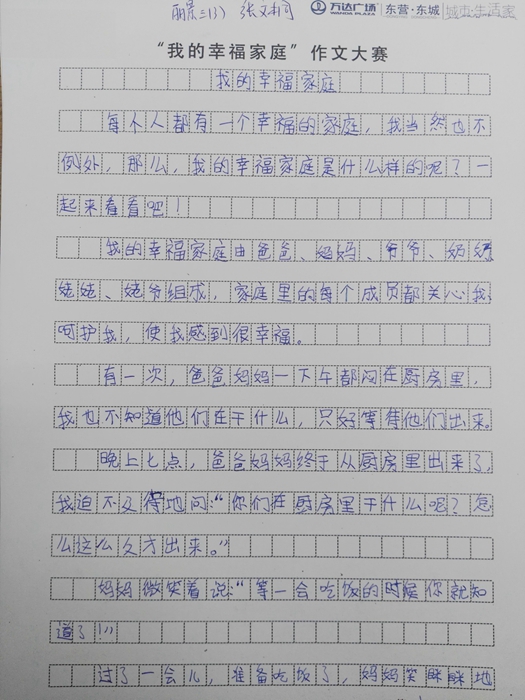 丽景三(3) 张又
万达广场 WANDA PLAZA 东营·东城 城市·生活家
“我的幸福家庭”作文大赛
我的幸福家庭
每个人都有一个幸福的家庭，我当然也不
例外，那么，我的幸福家庭是什么样的呢？一
起来看看吧！
我的幸福家庭由爸爸、妈妈、爷爷、奶奶
姥姥、姥爷组成，家庭里的每个成员都关心我
呵护我，使我感到很幸福。
有一次，爸爸妈妈一下午都闷在厨房里，
我也不知道他们在干什么，只好等待他们出来。
晚上七点，爸爸妈妈终于从厨房里出来了，
我迫不及得地问：“你们在厨房里干什么呢？怎
么这么久才出来。”
妈妈微笑着说：“等一会吃饭的时候你就知
道了！”
过了一会儿，准备吃饭了，妈妈笑眯眯地